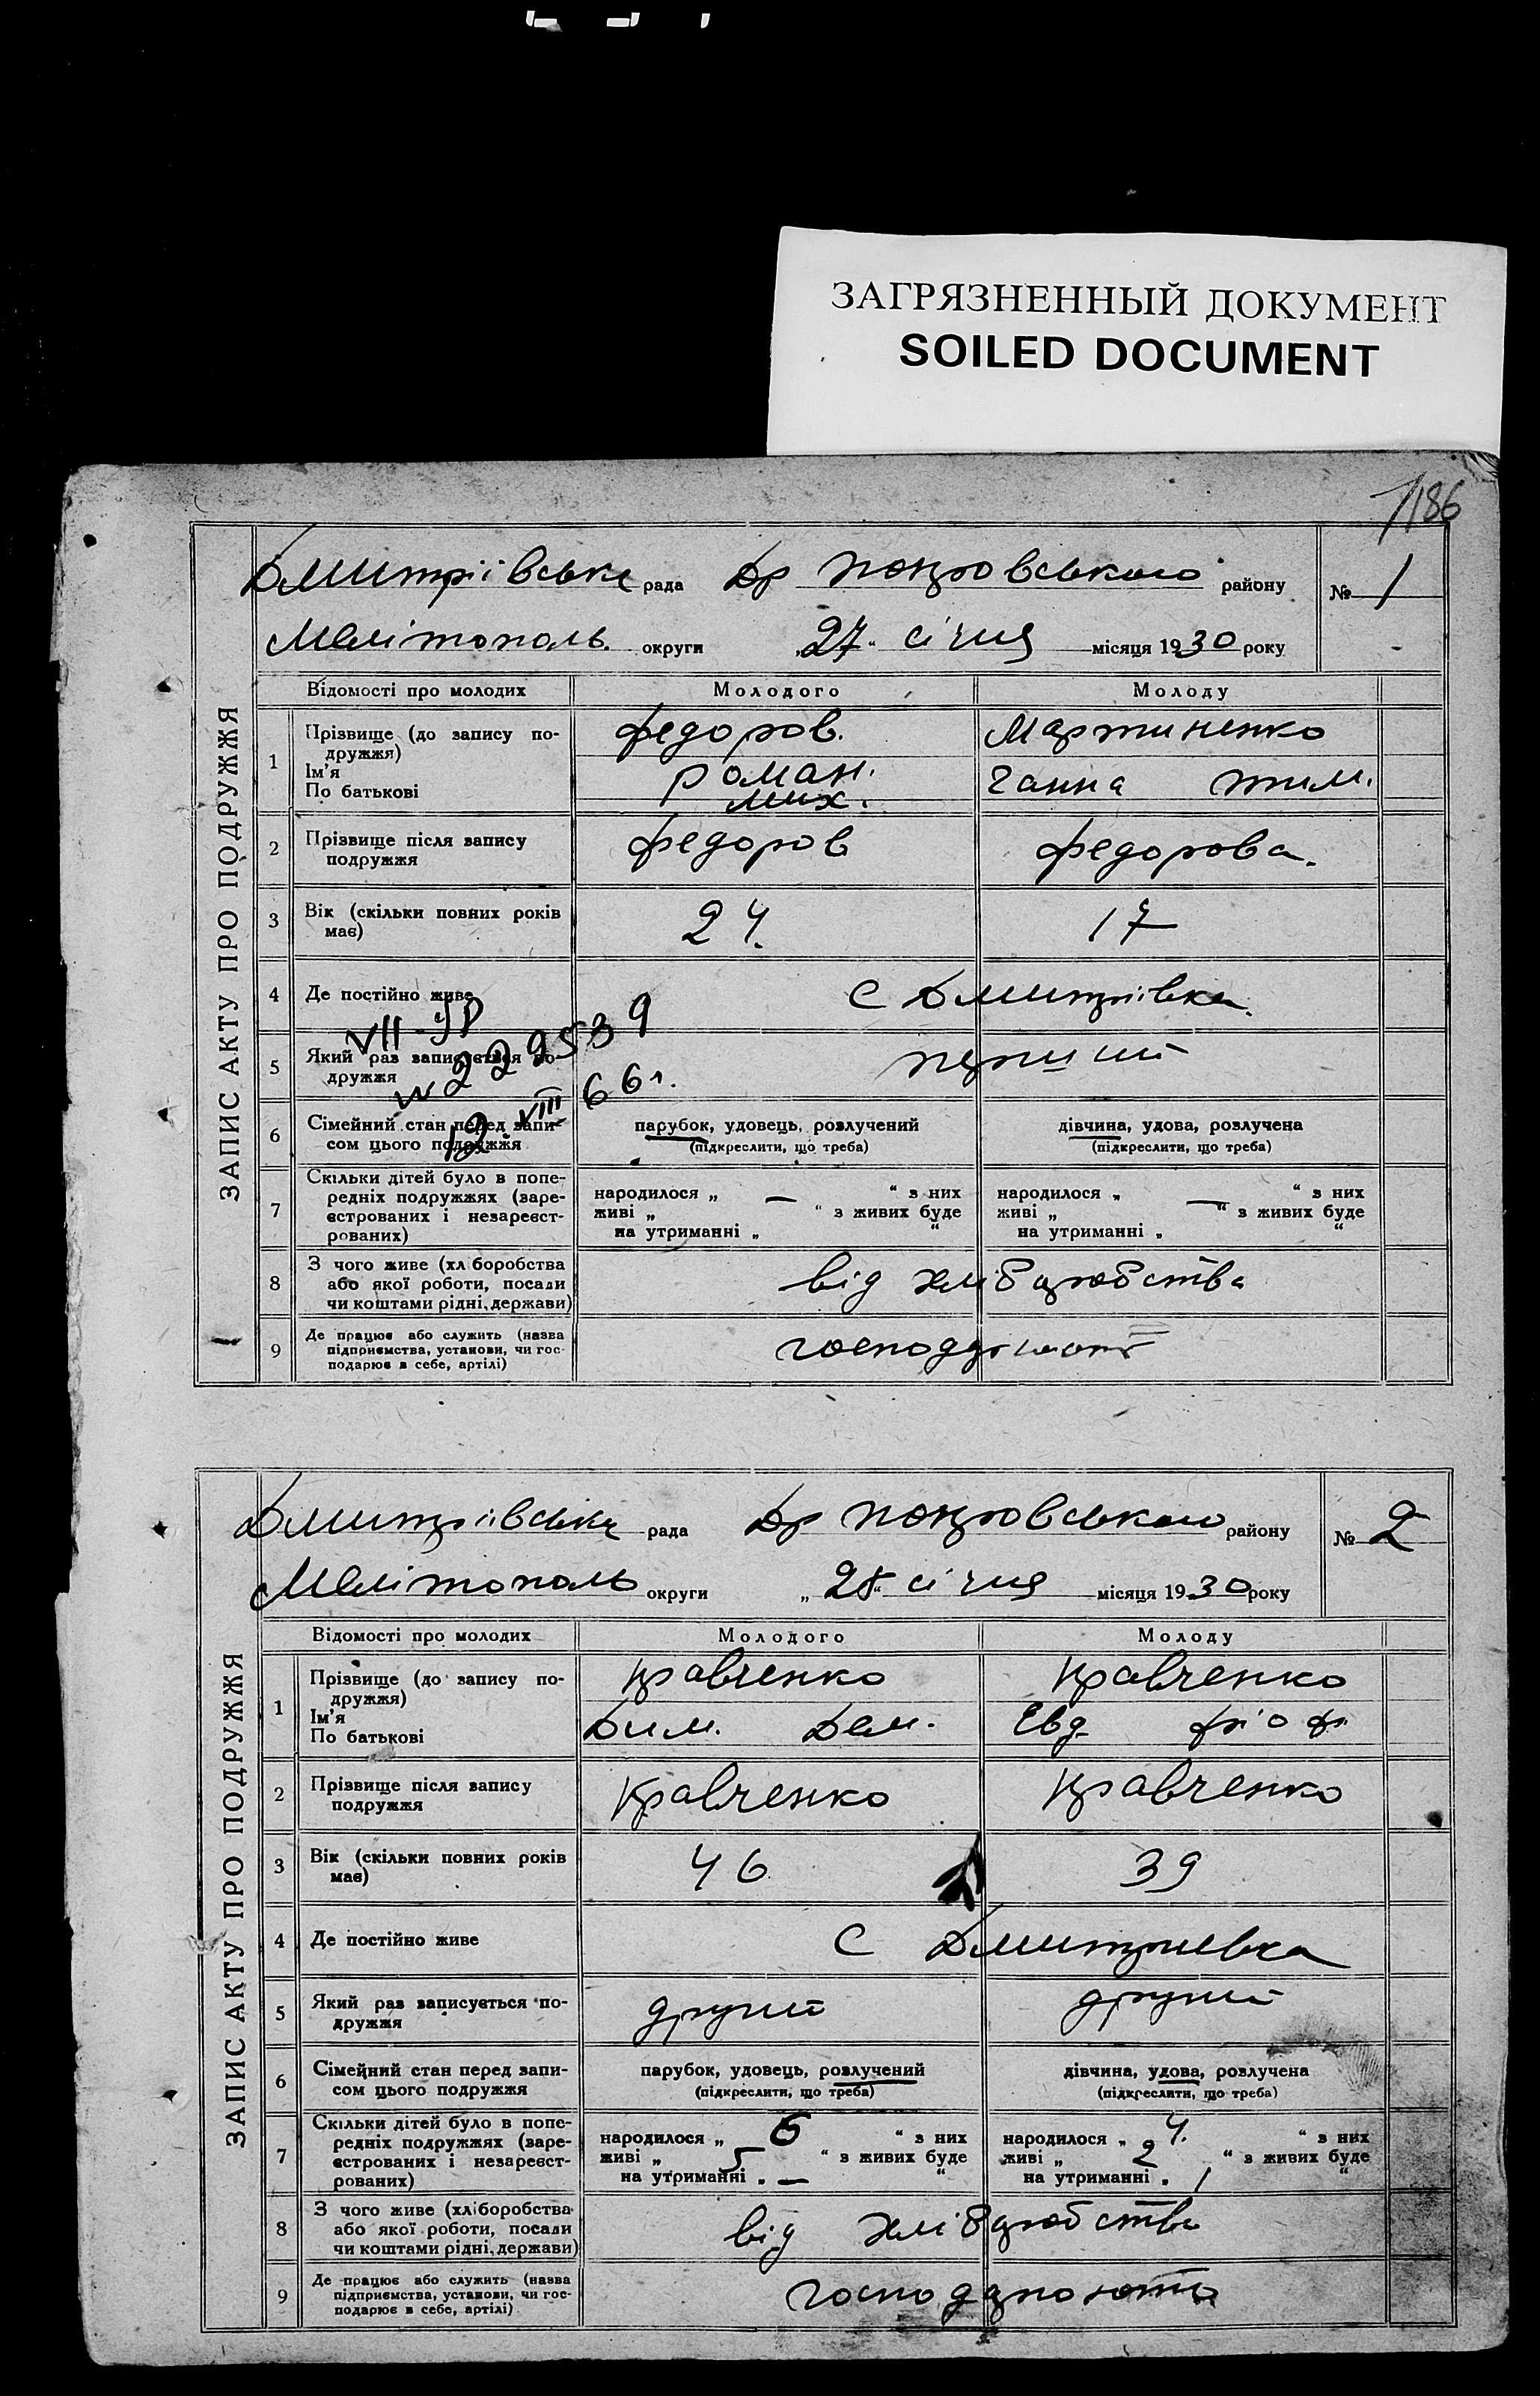 ЗАГРЯЗНЕННЫЙ ДОКУМЕНТ
SOILED DOCUMENT
186
ЗАПИС АКТУ ПРО ПОДРУЖЖЯ
Дмитріівська рада Др Покровського району № 1
Мелітополь. округи „27“ січня місяця 1930 року
Відомості про молодих Молодого Молоду
1 Прізвище (до запису по-дружжя) Федоров. Мартиненко
Ім'я Роман. Ганна тим.
По батькові мих.
2 Прізвище після запису подружжя Федоров Федорова.
3 Вік (скільки повних років має) 24. 17
4 Де постійно живе С Дмитрівка.
VII-ЯР
№ 229539
12 VIII 66г.
5 Який раз записується по-дружжя перший
6 Сімейний стан перед запи-сом цього подружжя парубок, удовець, розлучений (підкреслити, що треба) дівчина, удова, розлучена (підкреслити, що треба)
7 Скільки дітей було в попе-редніх подружжях (заре-єстрованих і незареєст-рованих) народилося „ — “ з них живі „ “ з живих буде на утриманні „ “ народилося „ — “ з них живі „ “ з живих буде на утриманні „ “
8 З чого живе (хл боробства або якої роботи, посади чи коштами рідні, держави) від хліборобства
9 Де працює або служить (назва підприємства, установи, чи гос-подарює в себе, артілі)
ЗАПИС АКТУ ПРО ПОДРУЖЖЯ
Дмитріівська рада Др Покровського району № 2
Мелітополь округи „28“ січня місяця 1930 року
Відомості про молодих Молодого Молоду
1 Прізвище (до запису по-дружжя) Кравченко Кравченко
Ім'я
По батькові Дим. Дем. Евд
2 Прізвище після запису подружжя Кравченко Кравченко
3 Вік (скільки повних років має) 46 39
4 Де постійно живе С Дмитриевка
5 Який раз записується по-дружжя другий другий
6 Сімейний стан перед запи-сом цього подружжя парубок, удовець, розлучений (підкреслити, що треба) дівчина, удова, розлучена (підкреслити, що треба)
7 Скільки дітей було в попе-редніх подружжях (заре-єстрованих і незареєст-рованих) народилося „ 6 “ з них живі „ 5 “ з живих буде на утриманні „ — “ народилося „ 4. “ з них живі „ 2 “ з живих буде на утриманні „ 1 “
8 З чого живе (хліборобства або якої роботи, посади чи коштами рідні, держави) від хліборобства
9 Де працює або служить (назва підприємства, установи, чи гос-подарює в себе, артілі) господарюють